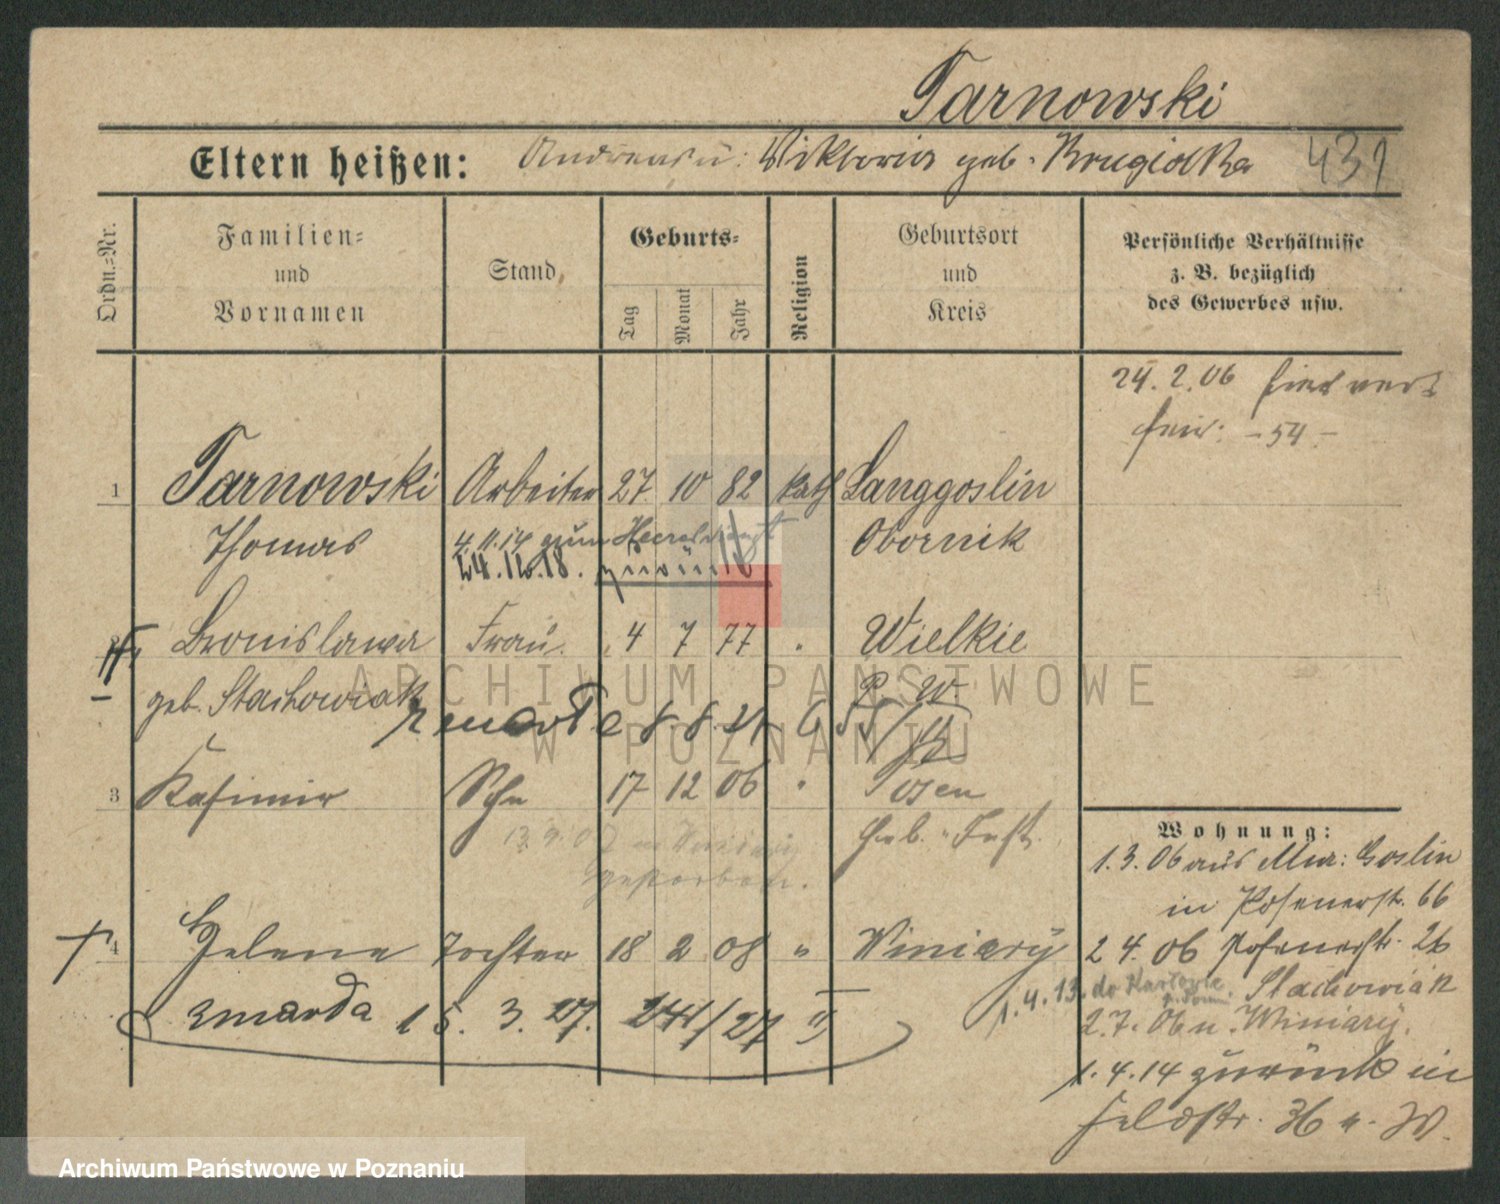 Tarnowski
Eltern heißen: Andreas u: Viktoria geb. 431
Ordn.-Nr.
Familien- und Vornamen
Stand
Geburts-
Tag Monat Jahr
Religion
Geburtsort und Kreis
Persönliche Verhältnisse
z. B. bezüglich
des Gewerbes usw.
24. 2. 06
- 54 -
1 Tarnowski Arbeiter 27. 10 82 kath Langgoslin
Thomas Obornik
4. 11. 14 zum Heer
24. 12. 18. zurück
Bronislawa Frau. 4 7 77 Wielkie
geb. Stachowiak P. W.
zmarła 8. 8. 21
3 Kasimir Sohn 17 12 06 " Posen
13. 9. 07 in Winiary
gestorben.
4 Helene Tochter 18 2 08 " Winiary
zmarła 15. 3. 27. 241/27 II
Wohnung:
1. 3. 06 aus Mur: Goslin
in Posenerstr. 66
2 4. 06 Posenerstr. 26
Stachowiak
1. 4. 13. do
2. 7. 06 n. Winiary.
1. 4. 14 zurück in
Feldstr. 36 n. W.
ARCHIWUM PAŃSTWOWE
W POZNANIU
Archiwum Państwowe w Poznaniu